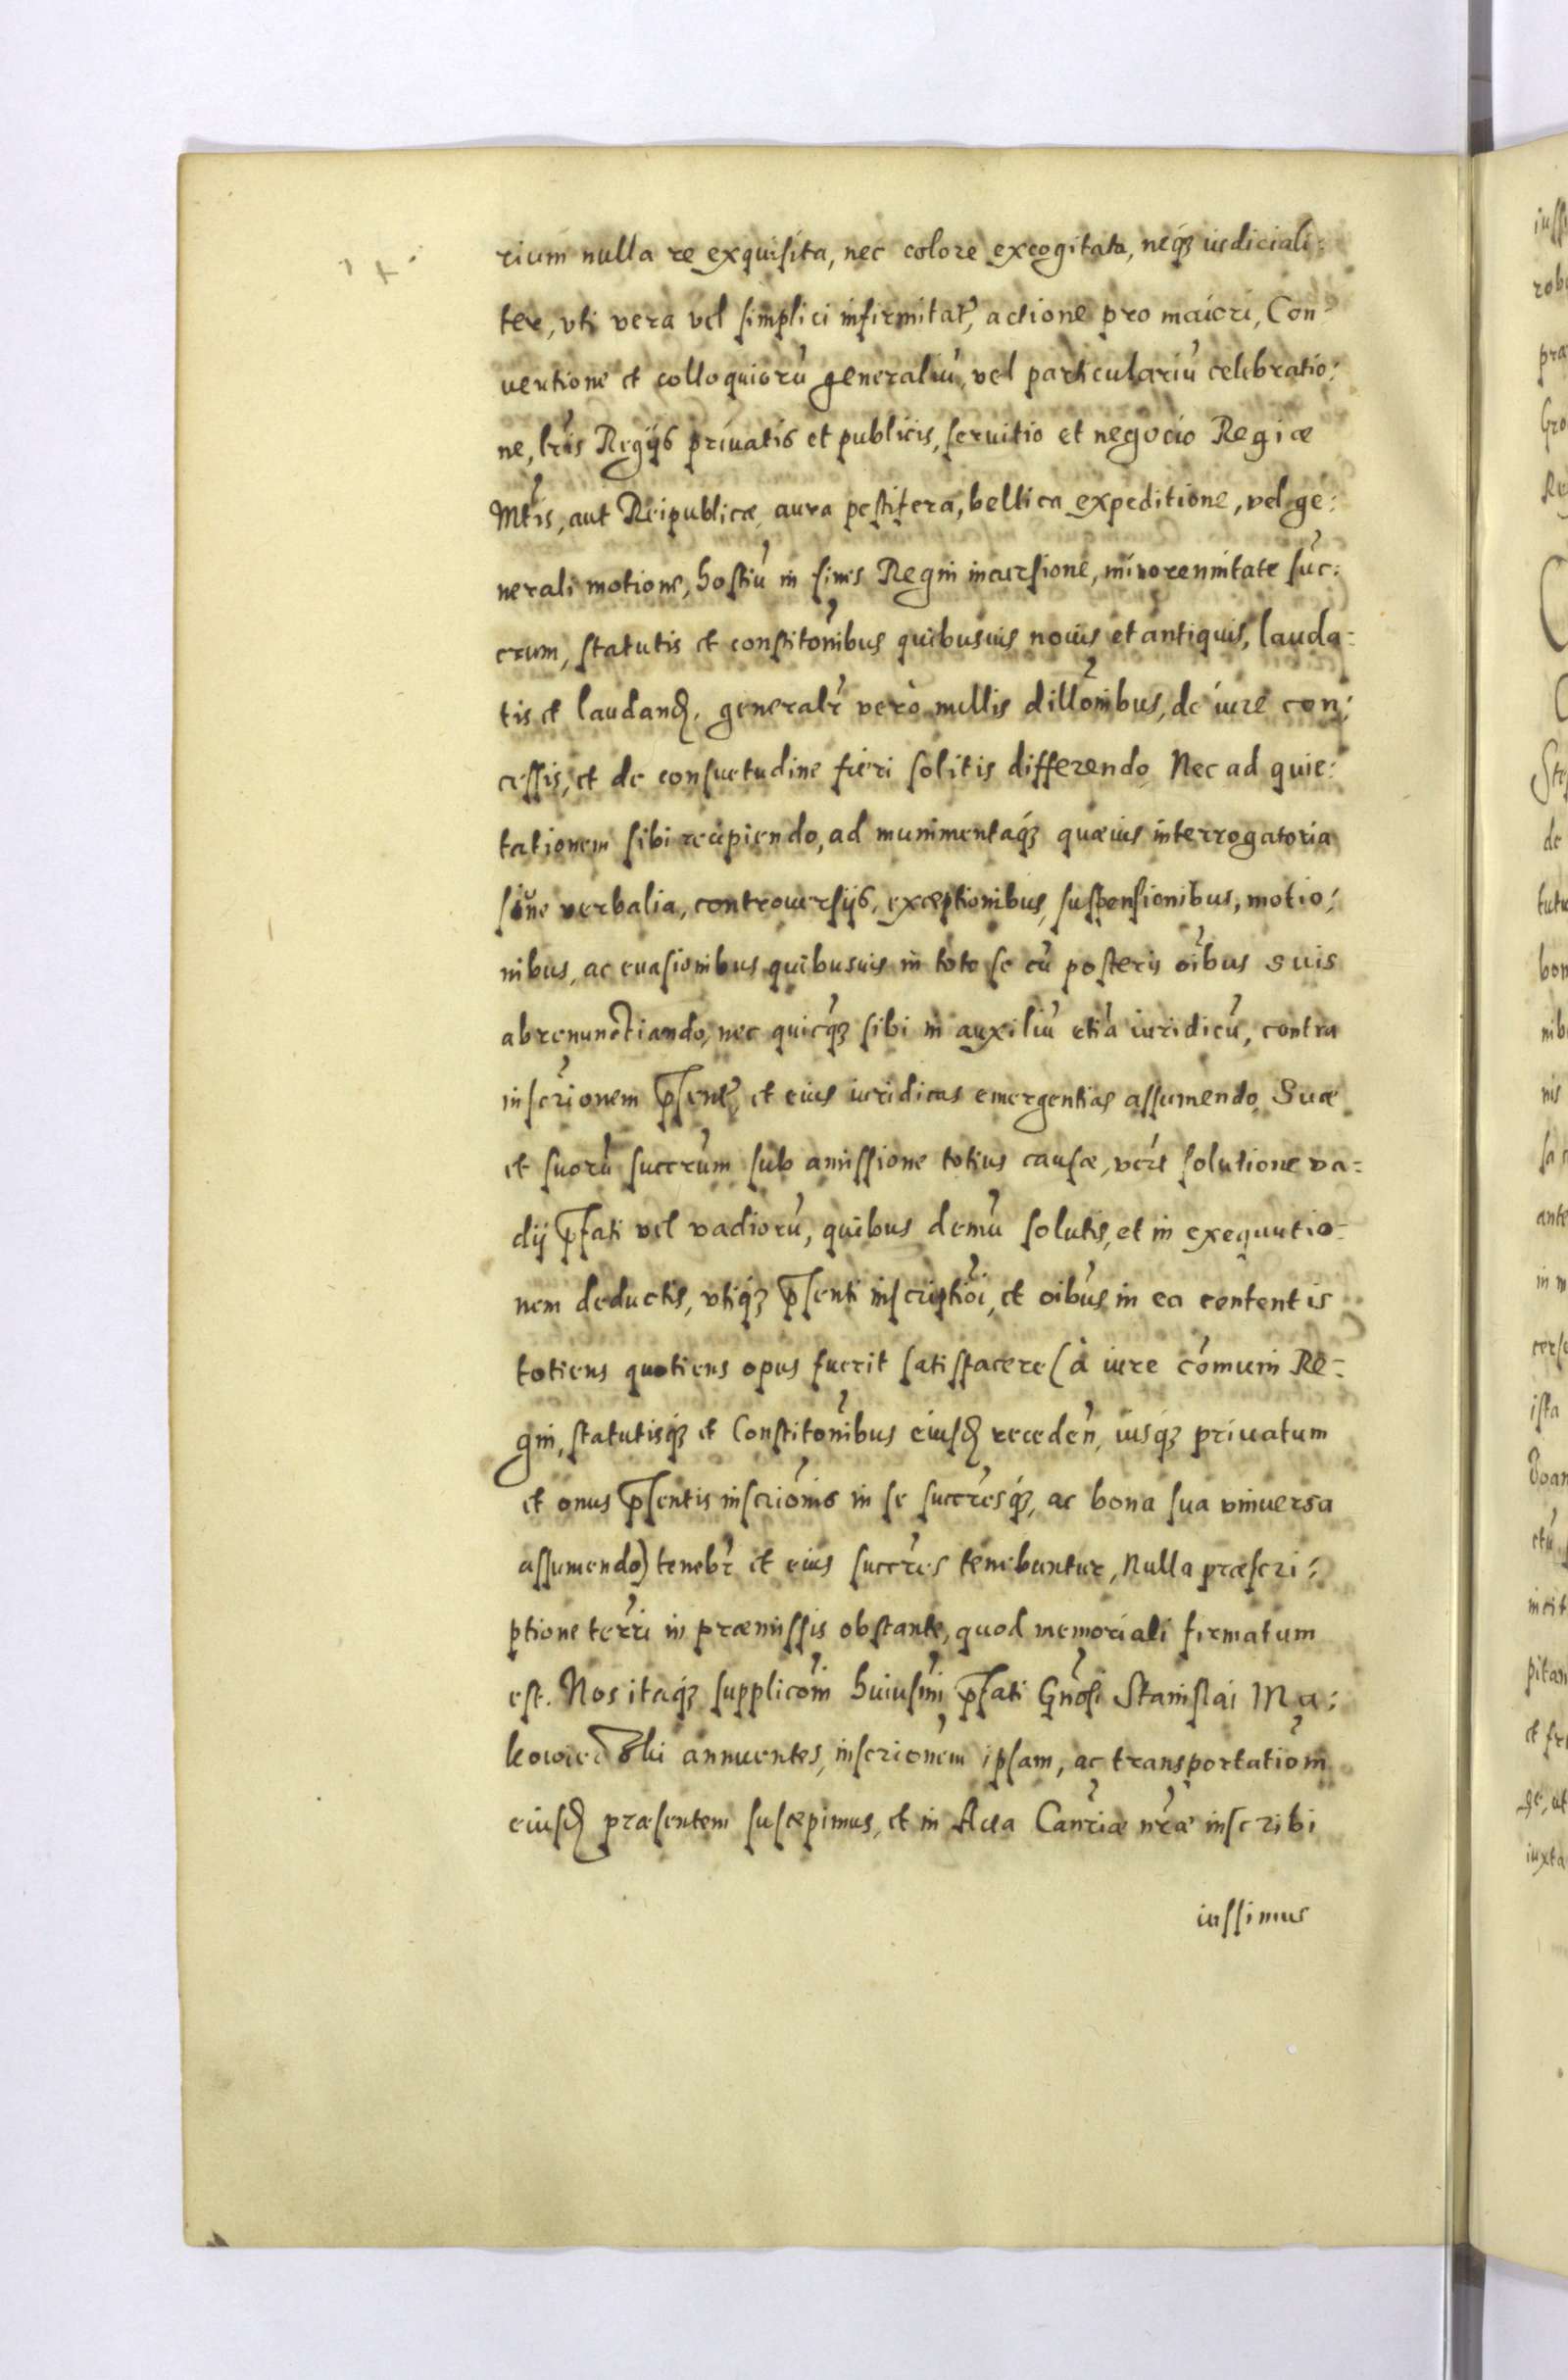 rium nulla re exquisita, nec colore excogitato, neqȝ iudiciali:
ter, vti vera vel simplici infirmitat̃, actione pro maiori, Con-
uentione et colloquiorũ generaliũ, vel particulariũ celebratio:
ne, lr̃is Regijs priuatis et publicis, seruitio et negocio Regiæ
Mt̃is, aut Reipublicæ, aura pestifera, bellica expeditione, vel ge:
nerali motione, hostiũ in fines Regni incursione, minorennitate suc̃:
crum, statutis et constitõnibus quibusuis nouis et antiquis, lauda-
tis et laudanɖ. generalr̃ verò nullis dillõnibus, de iure con:
cessis, et de consuetudine fieri solitis differendo, Nec ad quie:
tationem sibi recipiendo, ad munimentaqȝ quæuis interrogatoria
siue verbalia, controuersijs, exceptionibus, suspensionibus, motio:
nibus, ac euasionibus quibusuis in toto se cũ posteris oĩbus suis
abrenunctiando, nec quicqȝ sibi in auxiliũ etiã iuridicũ, contra
inscr̃ionem p̃sent̃, et eius iuridicas emergentias assumendo, Suæ
et suorũ succr̃um sub amissione totius causæ, ver̃e solutione va-
dij p̃fati vel vadiorũ, quibus demũ solutis, et in exequutio-
nem deductis, vtiqȝ p̃senti inscriptiõi, et oĩbus in ea contentis
totiens quotiens opus fuerit satisfacere (à iure cõmuni Re-
gni, statutisqȝ et Constitõnibus eiusɖ receden̄, iusqȝ priuatum
et onus p̃sentis inscriõnis in se succr̃esqȝ, ac bona sua vniuersa
assumendo) tenebr̃ et eius succr̃es tenebuntur, Nulla præscri:
ptione terr̃i in præmissis obstante, quod memoriali firmatum
est. Nos itaqȝ supplicõni huiusm̃i p̃fati Gñosi Stanislai Ma:
kowieczki annuentes, inscrionẽm ipsam, ac transportatiõm
eiusɖ præsentem suscepimus, et in Acta Canr̃iæ nr̃æ inscribi
iussimus